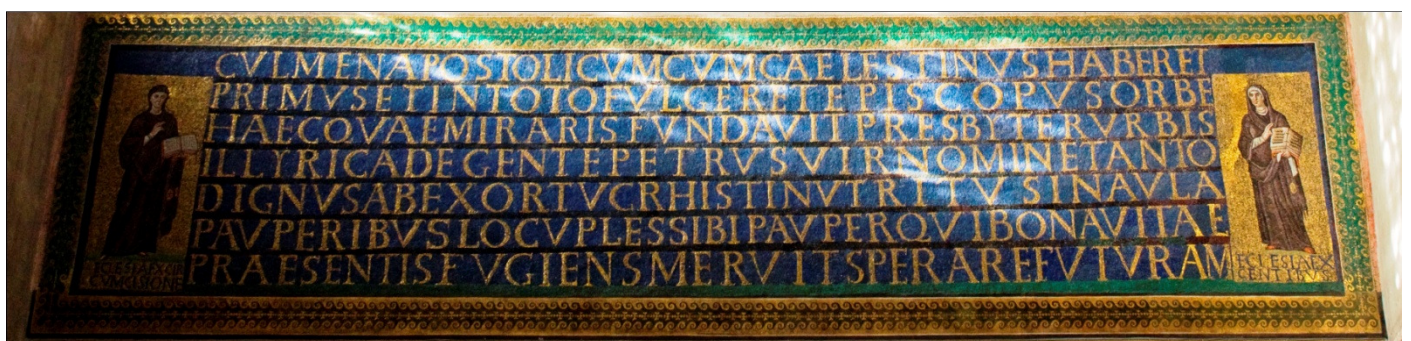 CVLMEN APOSTOLICVM CVM CAELESTINVS HABERET
PRIMVS ET IN TOTO FVLGERET EPISCOPVS ORBE
HAEC QVAE MIRARIS FVNDAVIT PRESBYTER VRBIS
ILLYRICA DE GENTE PETRVS VIR NOMINE TANTO
DIGNVS AB EXORTV CRHISTI NVTRITVS IN AVLA
PAVPERIBVS LOCVPLES SIBI PAVPER QVI BONA VITAE
PRAESENTIS FVGIENS MERVIT SPERARE FVTVRAM
ECLESIA EX CIR
CVMCISIONE
ECLESIA EX
GENTIBVS